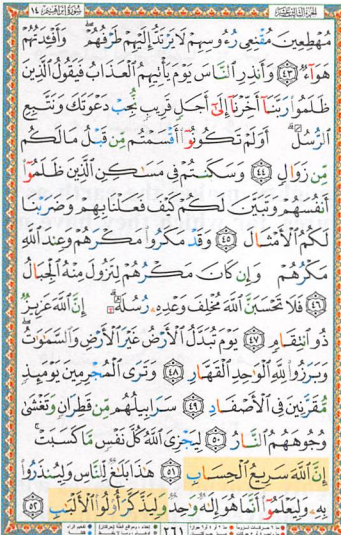 سُورَةُ إِبْرَاهِيم ١٤
الجزء الثالث عشر
مُهْطِعِينَ مُقْنِعِى رُءُوسِهِمْ لَا يَرْتَدُّ إِلَيْهِمْ طَرْفُهُمْ ۖ وَأَفْـِٔدَتُهُمْ
هَوَآءٌ ﴿٤٣﴾ وَأَنذِرِ ٱلنَّاسَ يَوْمَ يَأْتِيهِمُ ٱلْعَذَابُ فَيَقُولُ ٱلَّذِينَ
ظَلَمُوا۟ رَبَّنَآ أَخِّرْنَآ إِلَىٰٓ أَجَلٍ قَرِيبٍ نُّجِبْ دَعْوَتَكَ وَنَتَّبِعِ
ٱلرُّسُلَ ۗ أَوَلَمْ تَكُونُوٓا۟ أَقْسَمْتُم مِّن قَبْلُ مَا لَكُم
مِّن زَوَالٍ ﴿٤٤﴾ وَسَكَنتُمْ فِى مَسَـٰكِنِ ٱلَّذِينَ ظَلَمُوٓا۟
أَنفُسَهُمْ وَتَبَيَّنَ لَكُمْ كَيْفَ فَعَلْنَا بِهِمْ وَضَرَبْنَا
لَكُمُ ٱلْأَمْثَالَ ﴿٤٥﴾ وَقَدْ مَكَرُوا۟ مَكْرَهُمْ وَعِندَ ٱللَّهِ
مَكْرُهُمْ وَإِن كَانَ مَكْرُهُمْ لِتَزُولَ مِنْهُ ٱلْجِبَالُ
﴿٤٦﴾ فَلَا تَحْسَبَنَّ ٱللَّهَ مُخْلِفَ وَعْدِهِۦ رُسُلَهُۥٓ ۗ إِنَّ ٱللَّهَ عَزِيزٌ
ذُو ٱنتِقَامٍ ﴿٤٧﴾ يَوْمَ تُبَدَّلُ ٱلْأَرْضُ غَيْرَ ٱلْأَرْضِ وَٱلسَّمَـٰوَٰتُ ۖ
وَبَرَزُوا۟ لِلَّهِ ٱلْوَٰحِدِ ٱلْقَهَّارِ ﴿٤٨﴾ وَتَرَى ٱلْمُجْرِمِينَ يَوْمَئِذٍ
مُّقَرَّنِينَ فِى ٱلْأَصْفَادِ ﴿٤٩﴾ سَرَابِيلُهُم مِّن قَطِرَانٍ وَتَغْشَىٰ
وُجُوهَهُمُ ٱلنَّارُ ﴿٥٠﴾ لِيَجْزِىَ ٱللَّهُ كُلَّ نَفْسٍ مَّا كَسَبَتْ ۚ
إِنَّ ٱللَّهَ سَرِيعُ ٱلْحِسَابِ ﴿٥١﴾ هَـٰذَا بَلَـٰغٌ لِّلنَّاسِ وَلِيُنذَرُوا۟
بِهِۦ وَلِيَعْلَمُوٓا۟ أَنَّمَا هُوَ إِلَـٰهٌ وَٰحِدٌ وَلِيَذَّكَّرَ أُو۟لُوا۟ ٱلْأَلْبَـٰبِ ﴿٥٢﴾
٢٦١